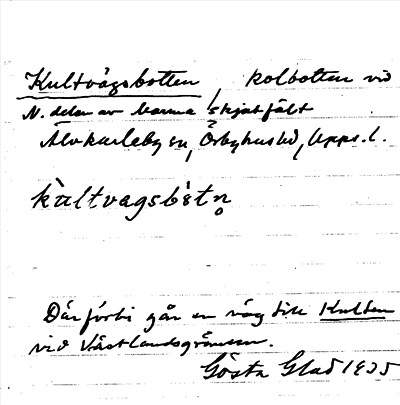 Kultvägsbotten, kolbotten vid
N. delen av Marma skjutfält
Älvkarleby sn, Örbyhus hd, Upps. l.
kultvagsbòtn̥
Där förbi går en väg till Kulten
vid Västlandsgränsen.
Gösta Glad 1935